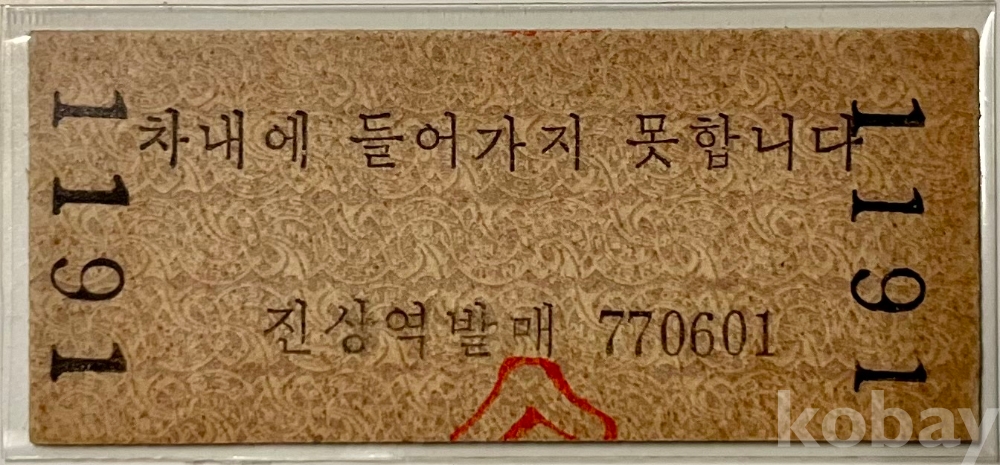 1191
차내에 들어가지 못합니다
진상역발매 770601
1191
kobay